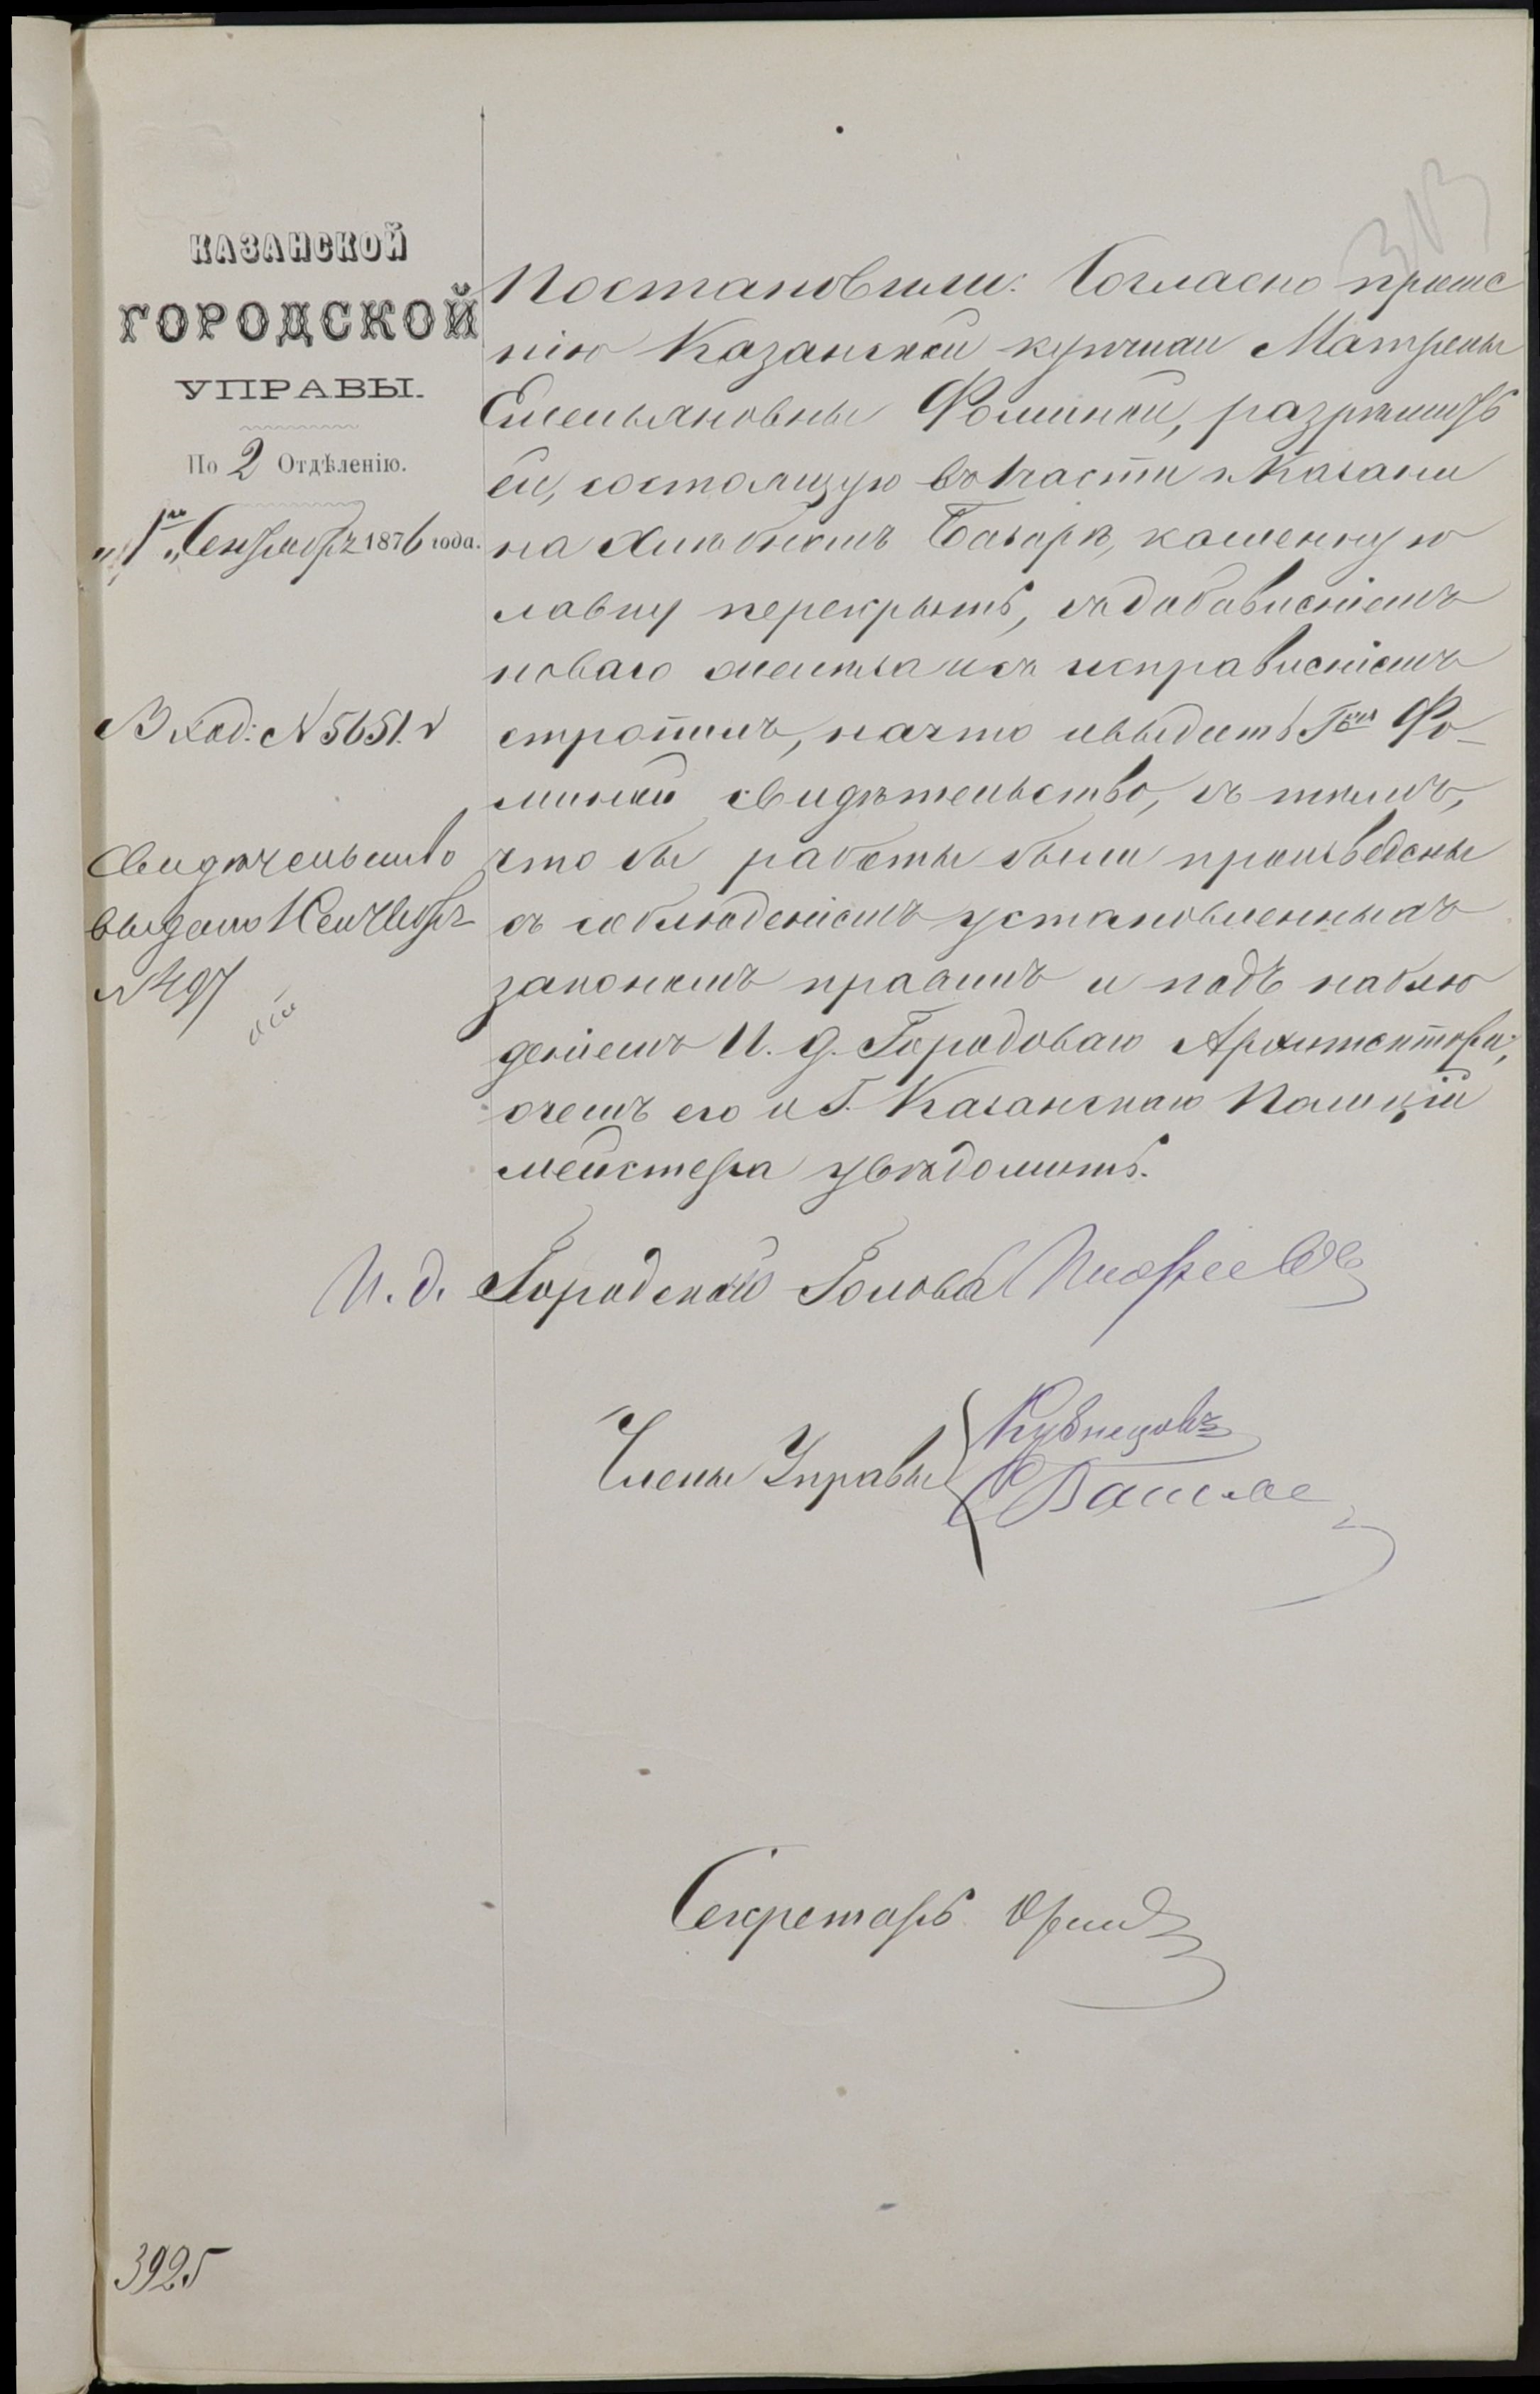 КАЗАНСКОЙ
ГОРОДСКОЙ
УПРАВЫ.
По 2 Отдѣленію.
„1го„ Сентября 1876 года.
Вход: № 5651.
Свидѣтельство
выдано 1 Сентября
№ 497
Постановили: Согласно проше
нію Казанской купчихи Матрены
Емельяновны Фоминой, разрѣшить
ей, состоящую въ 1 части г. Казани
на Хлѣбномъ Базарѣ, каменную
лавку перекрыть, съ добавленіемъ
новаго желѣза и съ исправленіемъ
стропилъ, на что и выдать Гжѣ Фо-
миной свидѣтельство, съ тѣмъ,
что бы работы были произведены
съ соблюденіемъ установленныхъ
закономъ правилъ и подъ наблю
деніемъ И. д. Городоваго Архитектора;
о чемъ его и Г. Казанскаго Полиціи
мейстера увѣдомить.
И. д. Городской Голова
Члены Управы
Кузнецовъ
Секретарь
3925